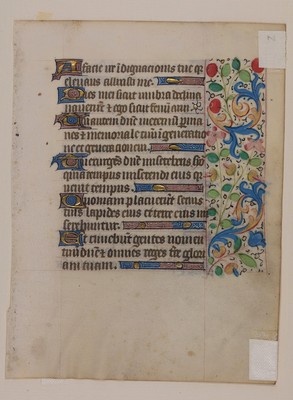 A facie ire ĩdignacionis tue q̃
elevans allisisti me.
Dies mei sicut umbra declina
verunt & ego sicut fenum arui
Tu autem dñe ineternũ perma
nes & memoriale tuũ ĩ generatio
ne et generacionem.
Tu exurgẽs dñe misereberis sió
quia tempus miserendi eius q̃
venit tempus.
Quoniam placuerũt servis
tuis lapides eius et terre eius mi
serebuntur.
Et timebũt gentes nomen
tuũ dñe & omnes reges tr̃e glori
am tuam.